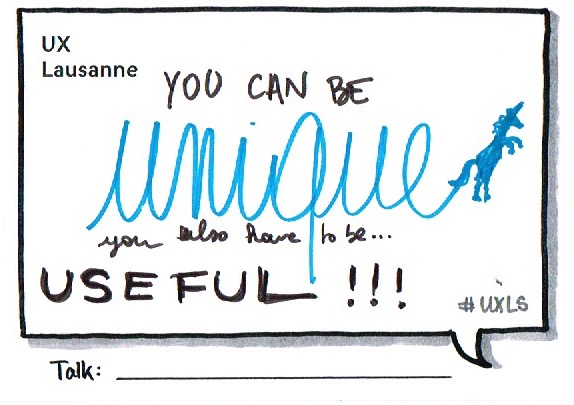 UX
Lausanne
YOU CAN BE
unique
you also have to be...
USEFUL !!!
#UXLS
Talk: